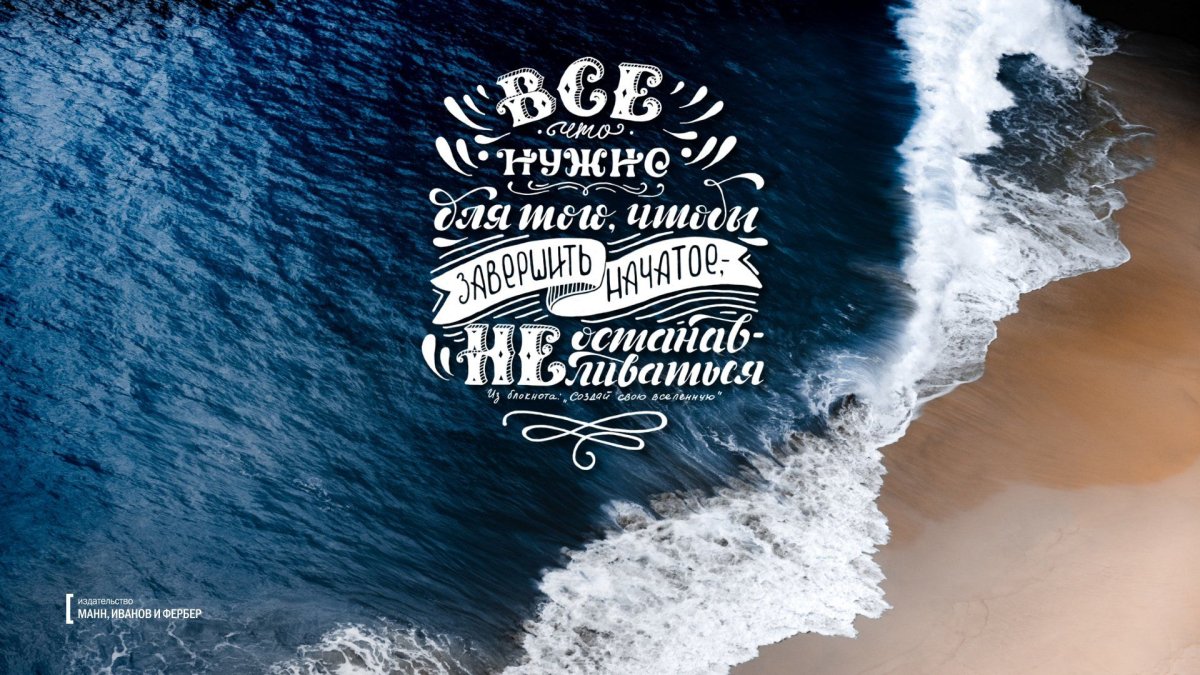 ВСЕ
что
НУЖНО
для того, чтобы
ЗАВЕРШИТЬ НАЧАТОЕ,-
НЕ останав-
ливаться
Из блокнота: „Создай свою вселенную"
издательство
МАНН, ИВАНОВ И ФЕРБЕР